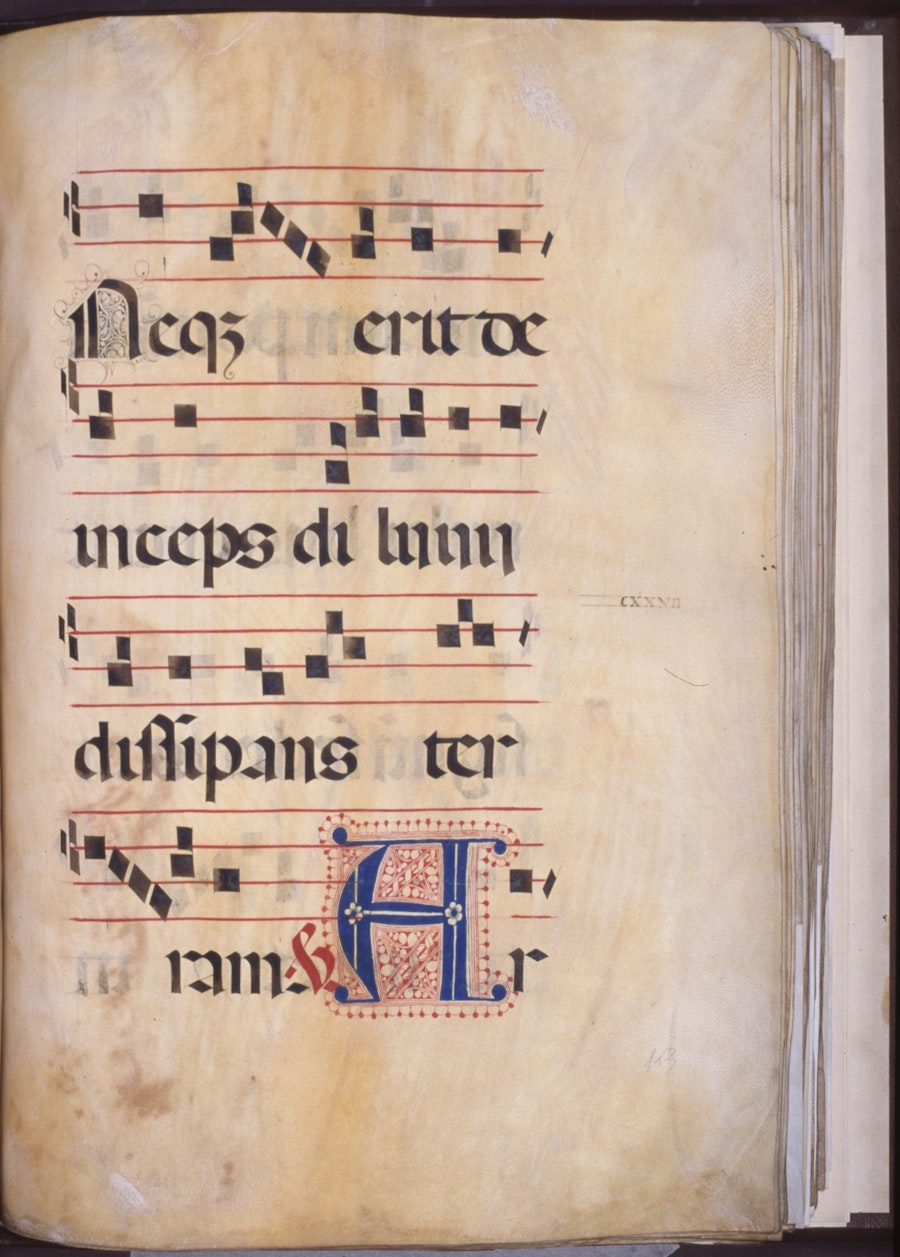 Neqꝫ erit de
inceps di luuij
dissipans ter
ram. V. Ar
CXXXII
113